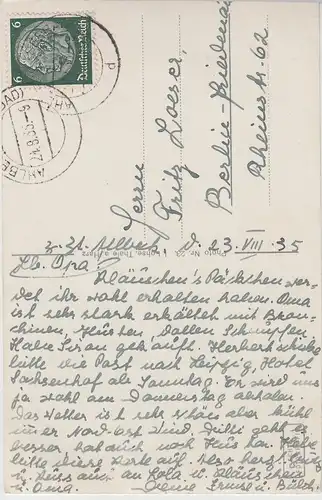 6 Deutsches Reich 6
AHLBECK
24.8.35.-9
Herrn
Fritz Loeser,
Berlin-Friedenau
Rheinstr. 62
Photo Nr.
Thale a. Harz
z. Zt. Ahlbeck d. 23. VIII. 35
Lb. Opa!
Kläuschen's Päckchen wer-
det ihr wohl erhalten haben. Oma
ist sehr stark erkältet mit Bron-
chien, Husten, dollen Schnupfen.
Habe gekauft. Herbert
bitte die Post nach Leipzig, Hotel
Sachsenhof als Sonntag. Er wird uns
ja wohl am Donnerstag abholen.
Das Wetter ist sehr schön aber kühl
immer Nord-Ost Wind. Ditti geht es
besser hat auch noch Husten. Habe
bitte diese Karte auf. Also herzl. Gruß
u. Kuss auch an Lola u. Kläuschen
u. Oma. Deine Erna u.